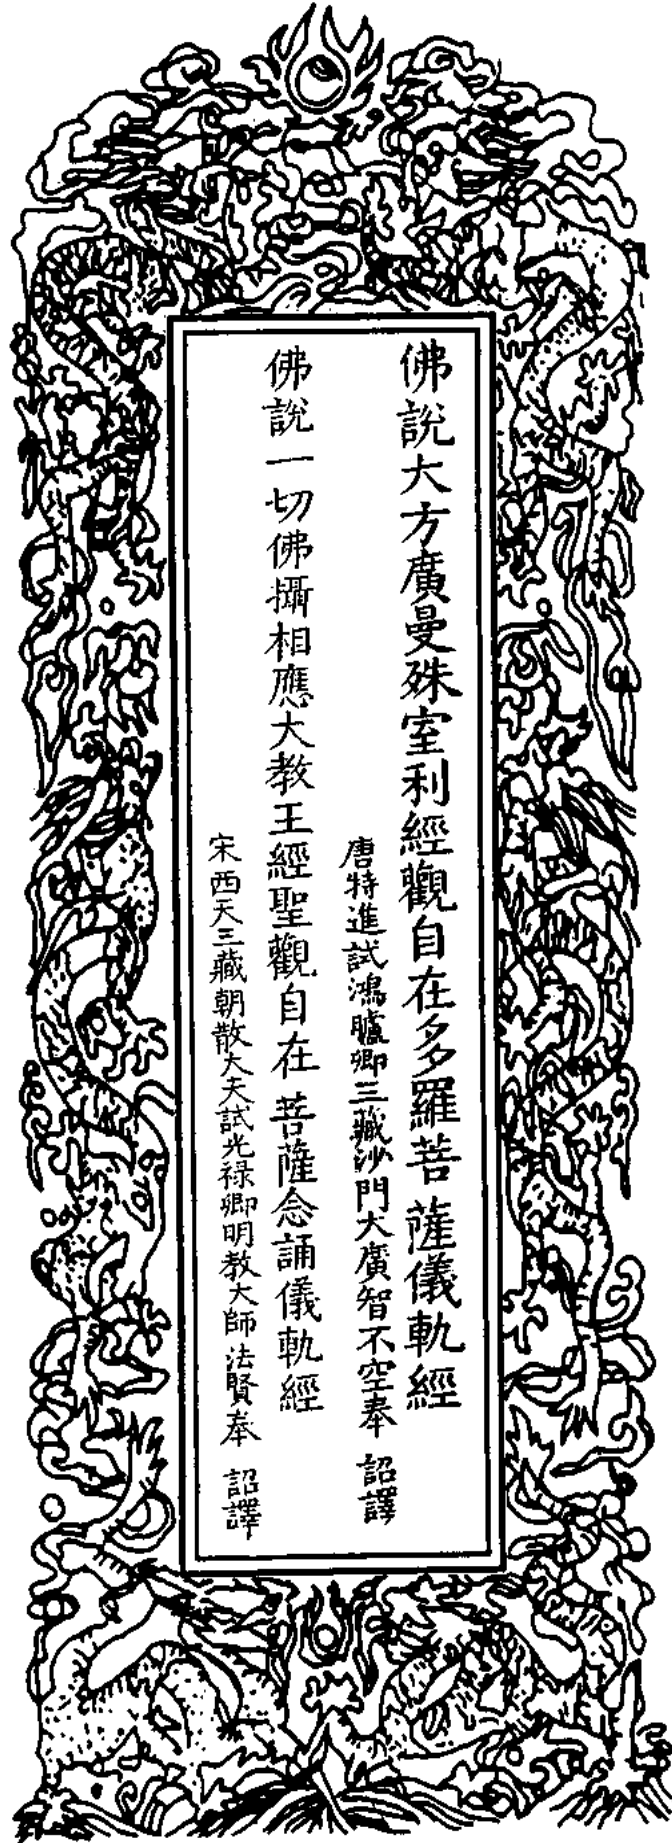 佛說大方廣曼殊室利經觀自在多羅菩薩儀軌經
唐特進試鴻臚卿三藏沙門大廣智不空奉 詔譯
佛說一切佛攝相應大教王經聖觀自在菩薩念誦儀軌經
宋西天三藏朝散大夫試光祿卿明教大師法賢奉 詔譯